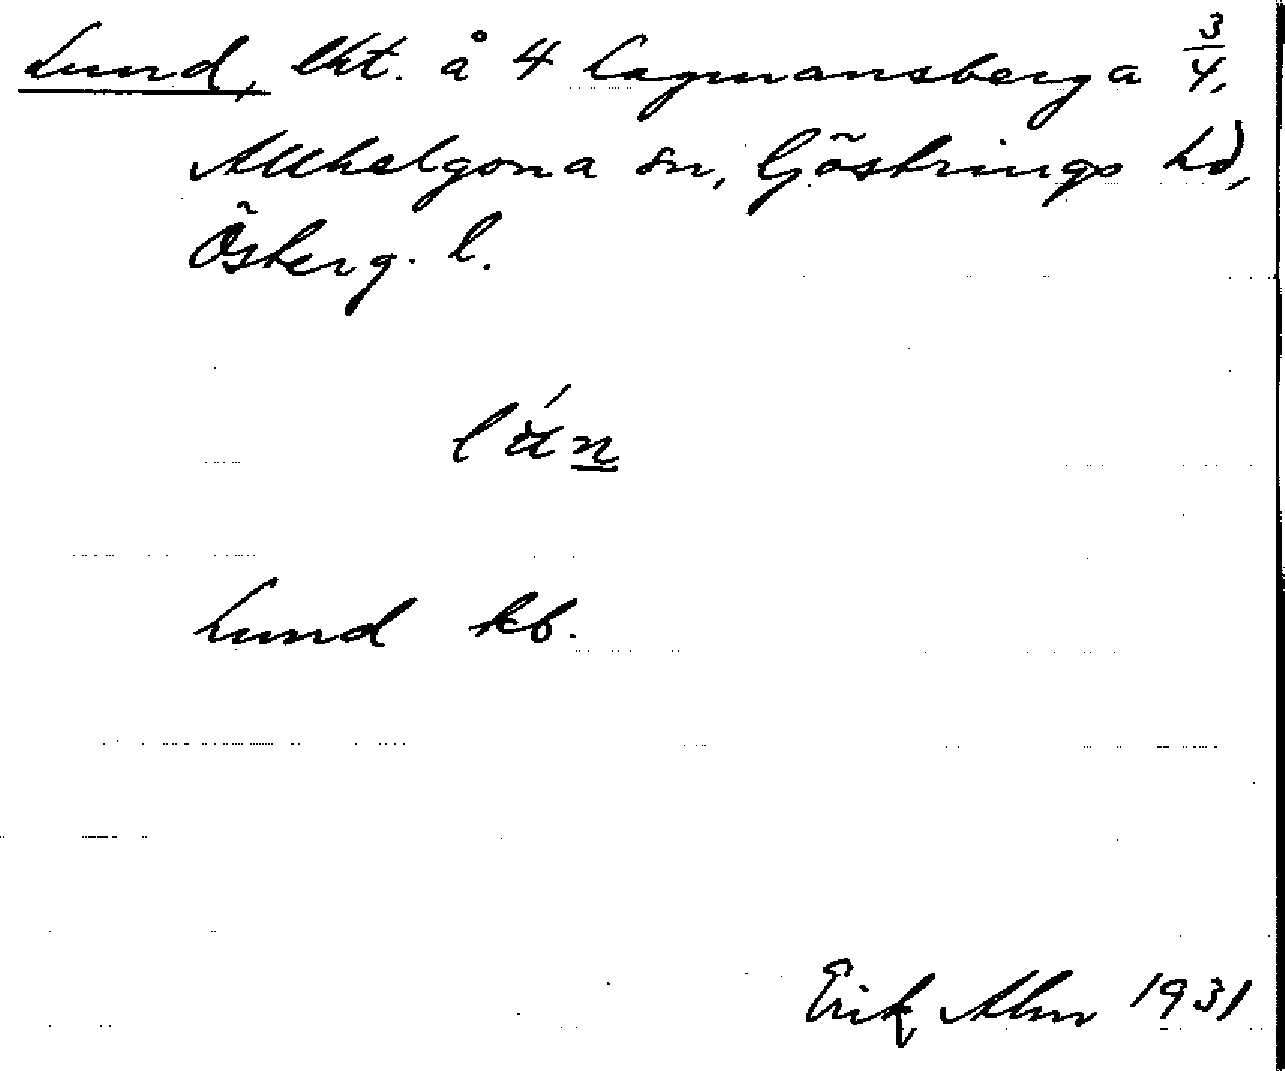 Lund, lht. å 4 Lagmansberga 3/4,
Allhelgona sn, Göstrings hd,
Österg. l.
Lund kb.
Erik Alm 1931